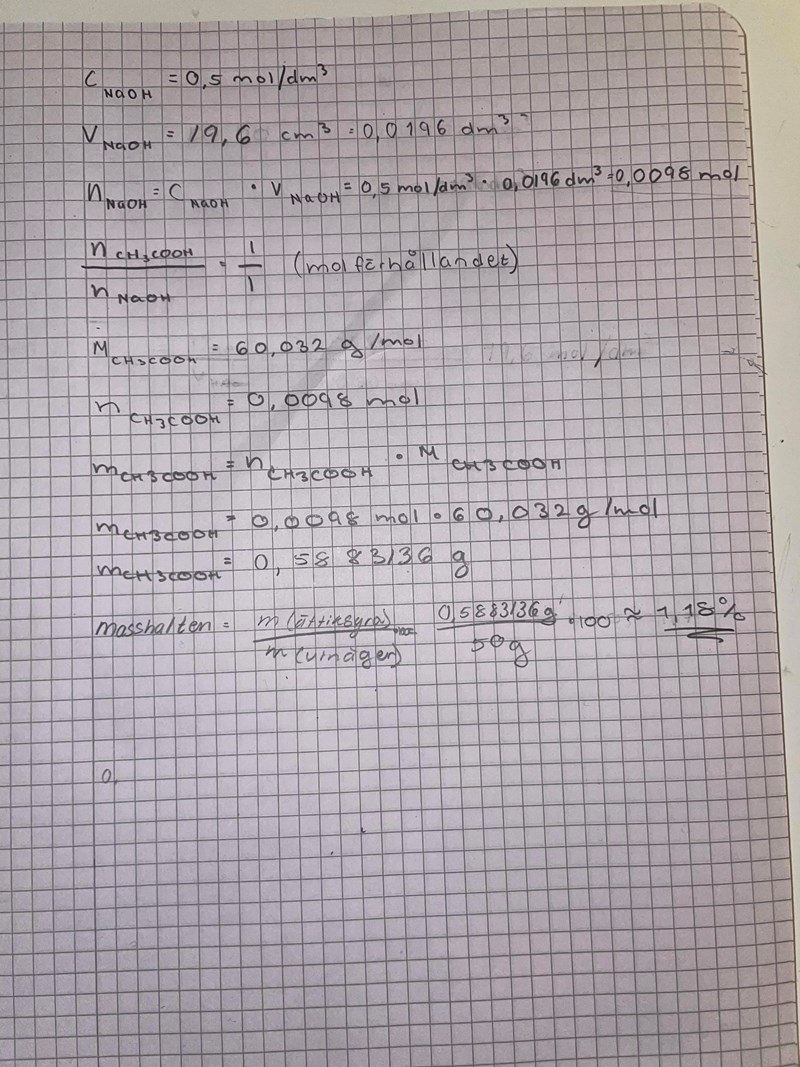 C NaOH = 0,5 mol/dm³
V NaOH = 19,6 cm³ = 0,0196 dm³
n NaOH = C NaOH · V NaOH = 0,5 mol/dm³ · 0,0196 dm³ = 0,0098 mol
n CH3COOH / n NaOH = 1/1 (molförhållandet)
M CH3COOH = 60,032 g/mol
n CH3COOH = 0,0098 mol
m CH3COOH = n CH3COOH · M CH3COOH
m CH3COOH = 0,0098 mol · 60,032 g/mol
m CH3COOH = 0,5883136 g
masshalten = m(ättiksyra) / m(vinägern) 0,5883136 g / 50g · 100 ≈ 1,18%
0,